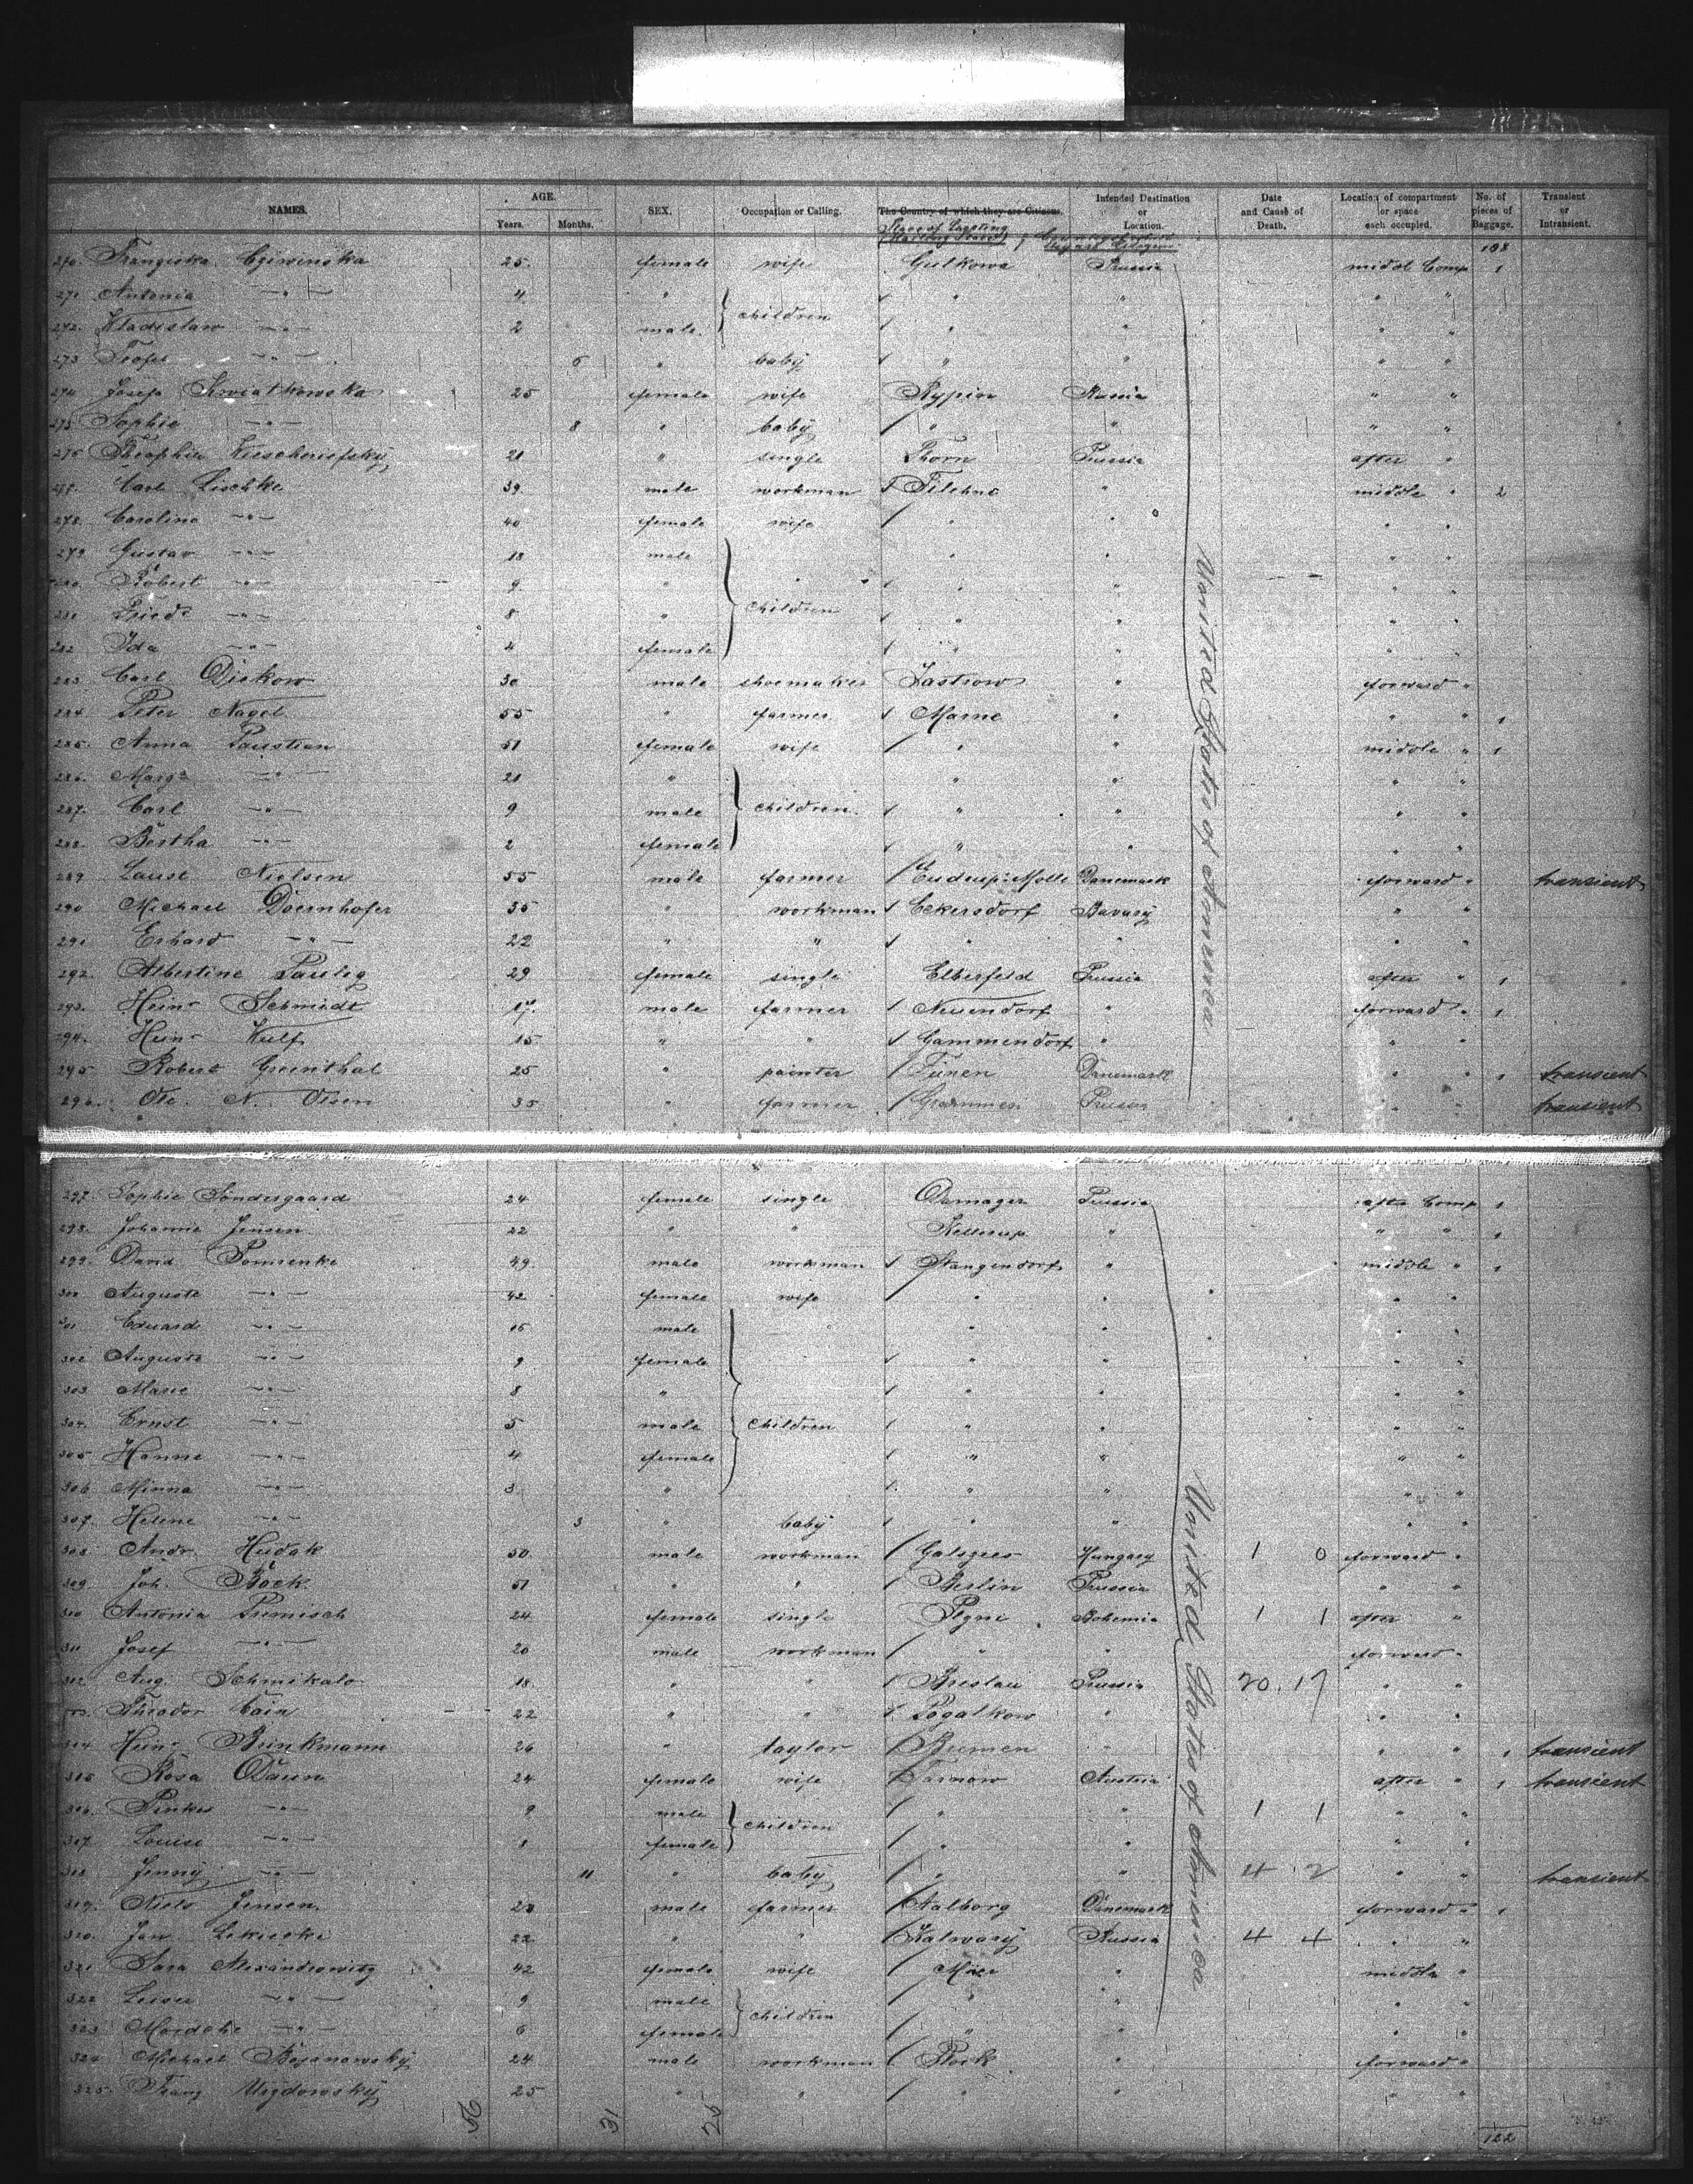 NAMES. AGE. Years. Months. SEX. Occupation or Calling. The Country of which they are Citizens. Intended Destination or Location. Date and Cause of Death. Location of compartment or space each occupied. No. of pieces of Baggage. Transient or Intransient.
108
270. Franziska Cziwinska 25. female wife Gulkowa Prussia middl Comp 1
271 Antonia —"— 4 " children " " " "
272. Wladislaw —"— 2 male. " " " "
273 Teofel —"— 6 " baby " " " "
274 Josefa Kwiatkowska 25 female wife Rypin Russia " "
275 Sophie —"— 8 " baby " " " "
276 Theophile 21 " single Thorn Prussia after "
277. Carl Lischke 39. male workman Filehne " middle " 2
278. Caroline —"— 40 female wife " " " "
279. Gustav —"— 13 male " " " "
280. Robert —"— 9. " " " " "
281 Friedr —"— 8 " children " " " "
282 Ida —"— 4 female " " " "
283 Carl Dickow 30 male shoemaker Jastrow " forward "
284. Peter Nagel 55 " farmer Marne " " " 1
285. Anna Paustian 51 female wife " " middle " 1
286. Marga —"— 21 " " " " "
287. Carl —"— 9 male children " " " "
288. Bertha —"— 2 female " " " "
289 Laust Nielsen 55 male farmer Danemark forward " transient
290 Michael Doernhofer 35 " workman Eckersdorf Bavary " "
291 Erhard —"— 22 " " " " " "
292. Albertine Paulig 29 female single Elberfeld Prussia after " 1
293. Heinr Schmidt 17. male farmer Neuendorf " forward " 1
294. Heinr Wulf 15 " " Gammendorf " " "
295 Robert Grünthal 25 " painter Fünen Danemark " " 1 transient
296. Ole. N. Olsen 35 " farmer Prussia " " transient
United States of America
297. Sophie Söndergaard 24 female single Damager Prussia after Comp 1
298. Johanne Jensen 22 " " Kellerup " " " 1
299. David Pomrenke 49. male workman Stangendorf " middle " 1
300 Auguste —"— 42 female wife " " " "
301 Eduard —"— 15 male " " " "
302 Auguste —"— 9 female " " " "
303 Marie —"— 8 " " " " "
304. Ernst —"— 5 male children " " " "
305 Hanne —"— 4 female " " " "
306 Minna —"— 3 " " " " "
307. Helene —"— 3 " baby " " " "
308 Andr. Hudak 50. male workman Hungary 1 0 forward "
309 Joh. Böck 51 " " Berlin Prussia " "
310 Antonia Premisch 24 female single Bohemia 1 1 after "
311 Josef —"— 20 male workman " " forward "
312 Aug. Schmikalo 18. " " Breslau Prussia 20. 17 " "
Theodor Cain 22 " " Pogalkow " " "
314 Heinr Brinkmann 26 " taylor Bremen " " " 1 transient
315 Rosa Daun 24 female wife Tarnow Austria after " 1 transient
316. Pinkus —"— 9 male children " " 1 1 " "
317. Louise —"— 8 female " " " "
318 Jenny —"— 11 " baby " " 4 2 " " transient
319. Niels Jensen 23 male farmer Aalborg Danemark forward " 1
320. Jan Lekieski 22 " " Kalwary Russia 4 4 " "
321 Sara Alexandrowitz 42 female wife " middle "
322 Leiser —"— 9 male children " " " "
323 Mordche —"— 6 female " " " "
324 Michael Bojanowsky 24 male workman Plock " forward "
325. Franz Migdowsky 25 " " " " " "
United States of America
56 31 25 122